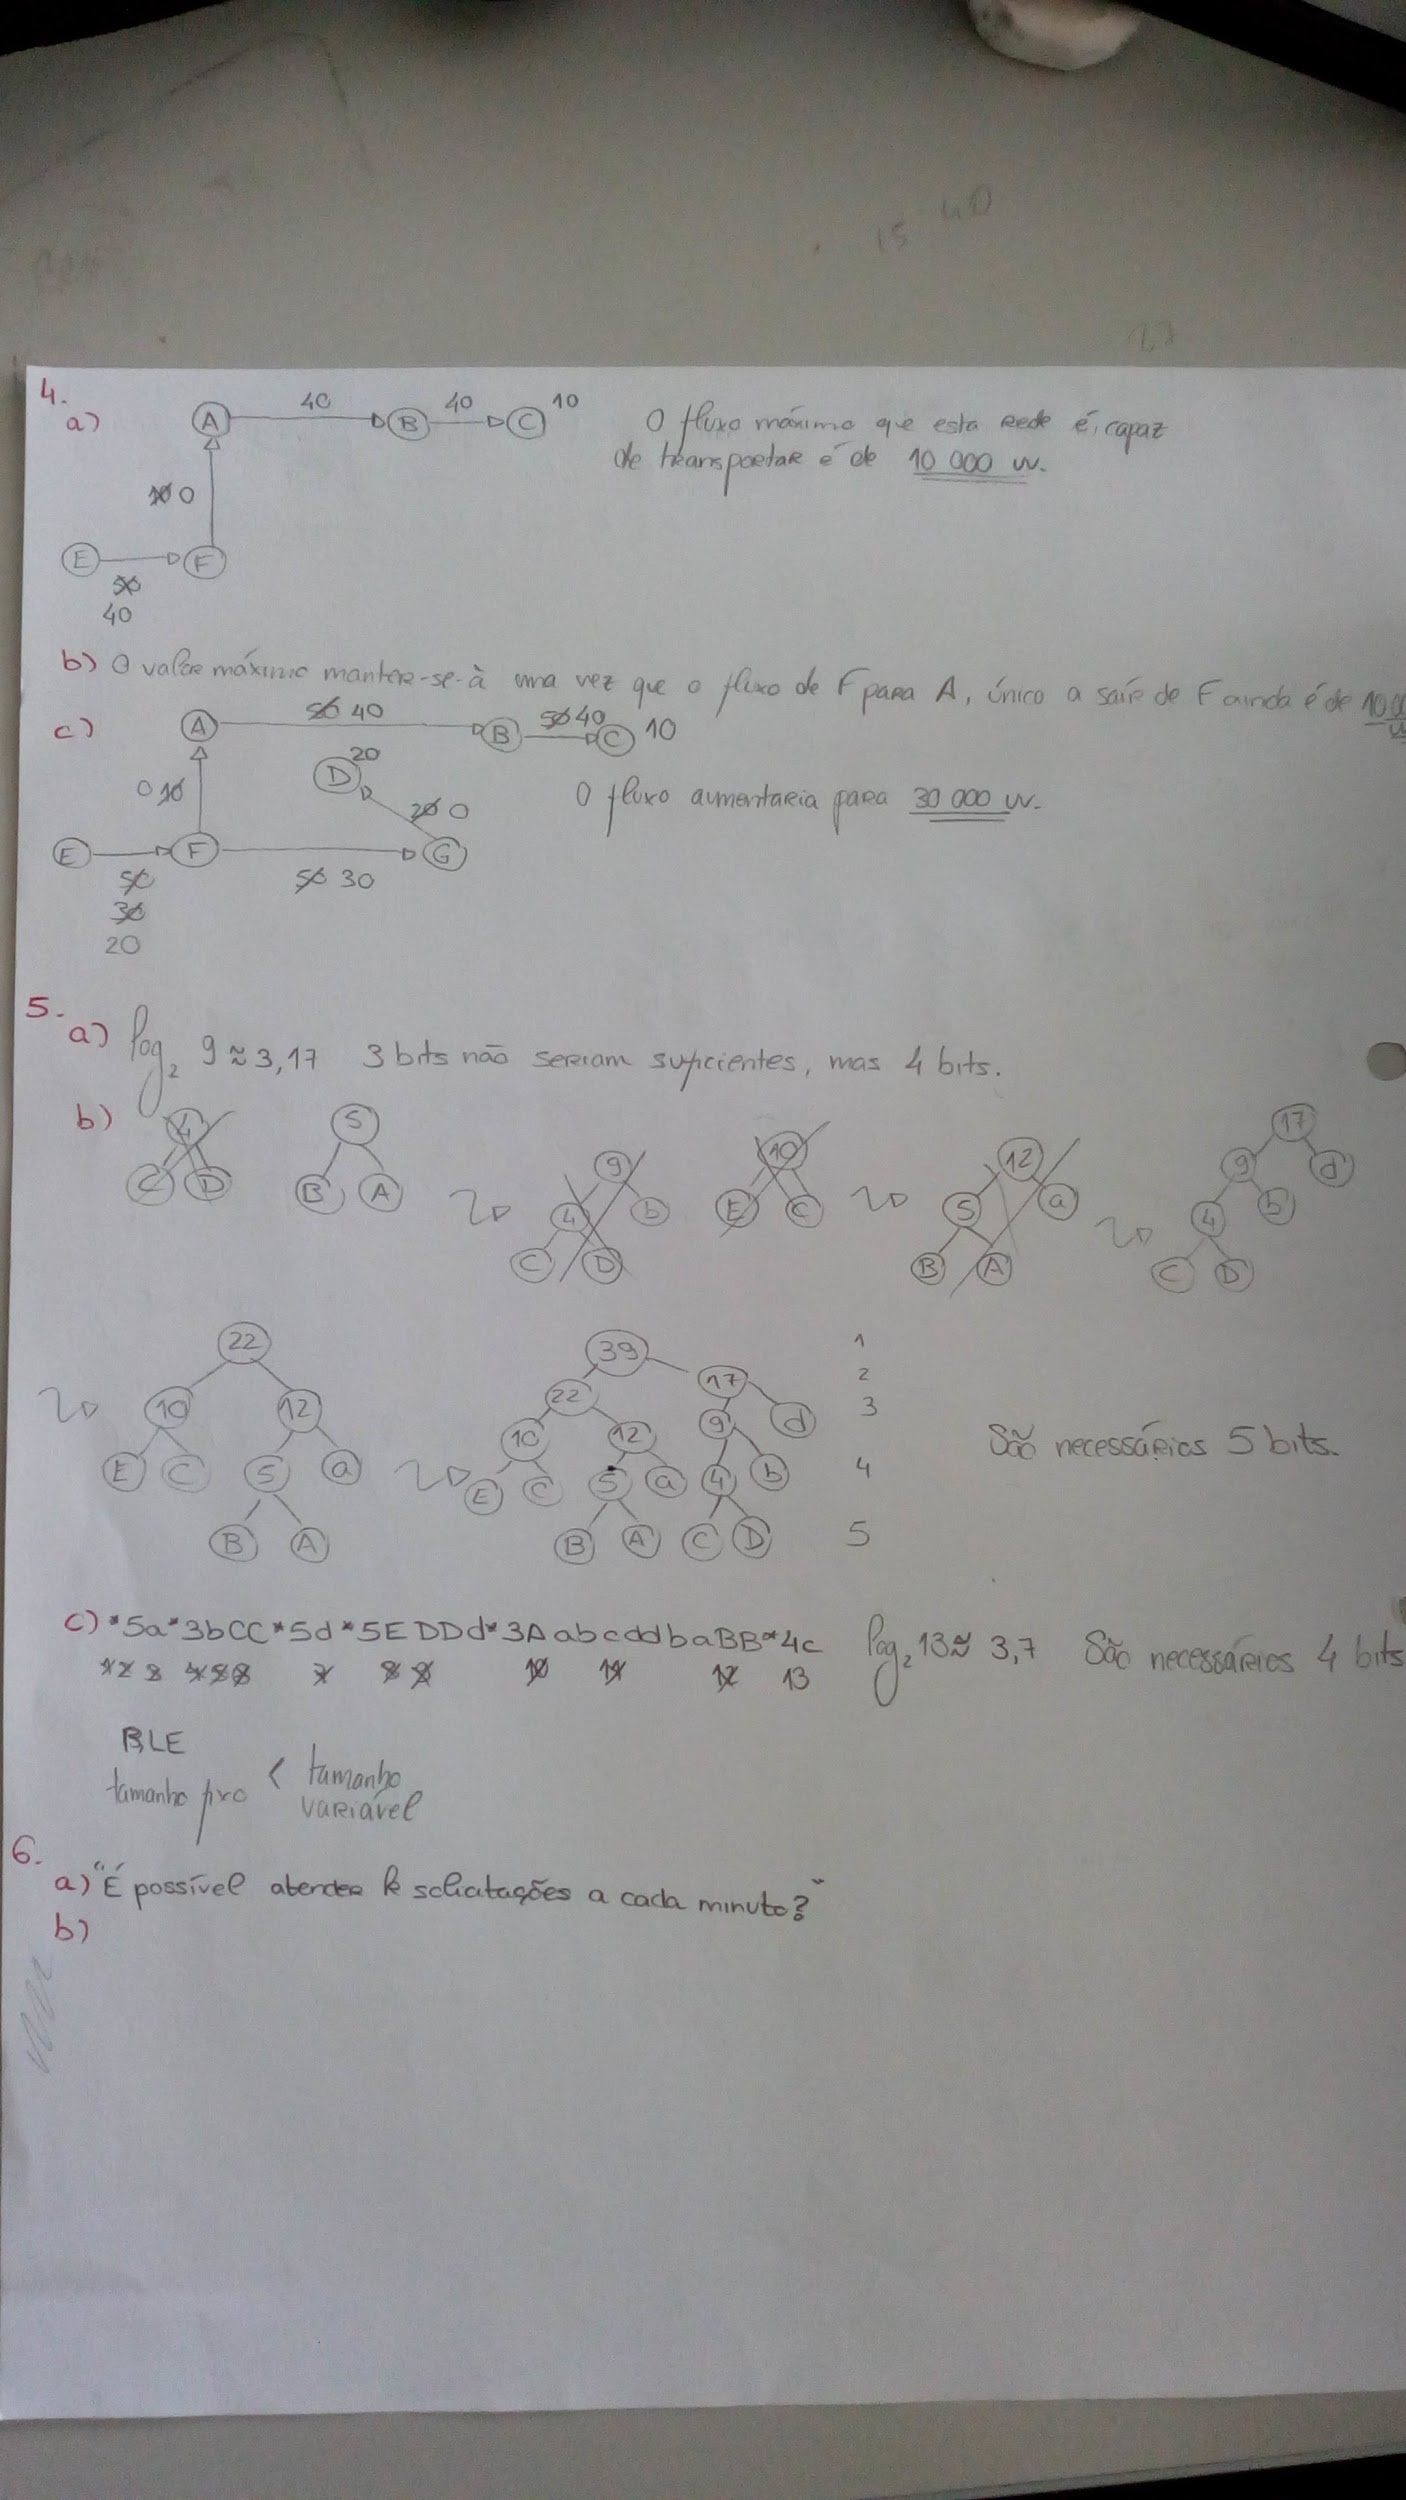 15 40
27
4.
a) A 40 B 40 C 10
10 0
E F
50
40
O fluxo máximo que esta rede é capaz
de transportar é de 10 000 W.
b) O valor máximo manter-se-à uma vez que o fluxo de F para A, único a sair de F ainda é de 10 00
W
c) A 50 40 B 50 40 C 10
D 20
0 10 20 0
E F G
50 50 30
30
20
O fluxo aumentaria para 30 000 W.
5.
a) log2 9 ≈ 3,17 3 bits não seriam suficientes, mas 4 bits.
b) 4 5 9 10 12 17
C D B A 4 b E C 5 a 9 d
C D B A 4 b
C D
22 39 1
10 12 22 17 2
E C 5 a 10 12 9 d 3
B A E C 5 a 4 b 4
B A C D 5
São necessários 5 bits.
c) *5a*3bCC*5d*5EDDd*3Aabcddbabb*4c log2 13 ≈ 3,7 São necessários 4 bits
10 11 12 13
RLE
tamanho fixo < tamanho
variável
6.
a) "É possível atender k solicitações a cada minuto?"
b)